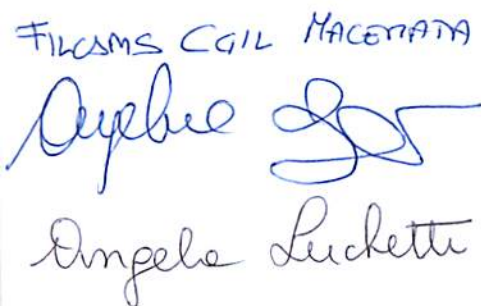 FILCAMS CGIL MACERATA
Angela Luchetti